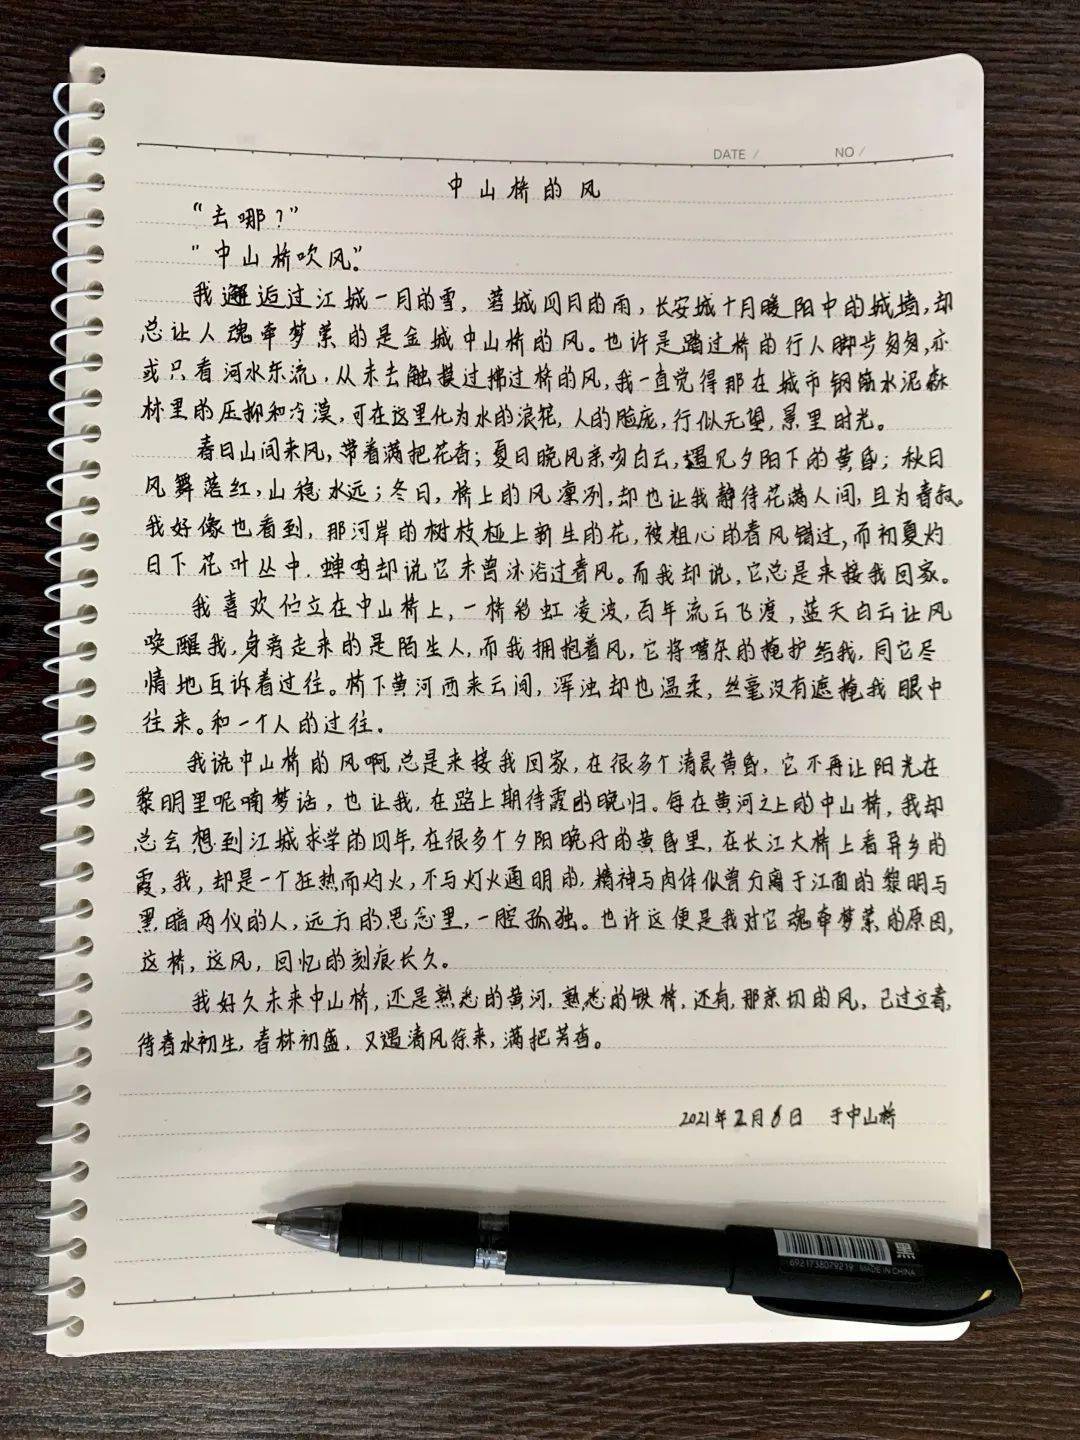 DATE / NO /
中山桥的风
“去哪？”
“中山桥吹风”。
我邂逅过江城一月的雪，蓉城四月的雨，长安城十月暖阳中的城墙，却
总让人魂牵梦萦的是金城中山桥的风。也许是踏过桥的行人脚步匆匆，亦
或只看河水东流，从未去触摸过拂过桥的风，我一直觉得那在城市钢筋水泥森
林里的压抑和冷漠，可在这里化为水的浪花，人的脸庞，行似无望，景里时光。
春日山间来风，带着满把花香；夏日晚风亲吻白云，遇见夕阳下的黄昏；秋日
风舞落红，山稳水远；冬日，桥上的风凛冽，却也让我静待花满人间，且为春叙。
我好像也看到，那河岸的树枝桠上新生的花，被粗心的春风错过，而初夏灼
日下花叶丛中，蝉鸣却说它未曾沐浴过春风。而我却说，它总是来接我回家。
我喜欢伫立在中山桥上，一桥彩虹凌波，百年流云飞渡，蓝天白云让风
唤醒我，身旁走来的是陌生人，而我拥抱着风，它将嘈杂的掩护给我，同它尽
情地互诉着过往。桥下黄河西来云间，浑浊却也温柔，丝毫没有遮掩我眼中
往来。和一个人的过往。
我说中山桥的风啊，总是来接我回家，在很多个清晨黄昏，它不再让阳光在
黎明里呢喃梦话，也让我，在路上期待霞的晚归。每在黄河之上的中山桥，我却
总会想到江城求学的四年，在很多个夕阳晚丹的黄昏里，在长江大桥上看异乡的
霞，我，却是一个狂热而灼火，不与灯火通明的，精神与肉体似曾分离于江面的黎明与
黑暗两仪的人，远方的思念里，一腔孤独。也许这便是我对它魂牵梦萦的原因，
这桥，这风，回忆的刻痕长久。
我好久未来中山桥，还是熟悉的黄河，熟悉的铁桥，还有，那亲切的风，已过立春，
待春水初生，春林初盛，又遇清风徐来，满把芳香。
2021年2月8日 于中山桥
黑
6921738079219 MADE IN CHINA